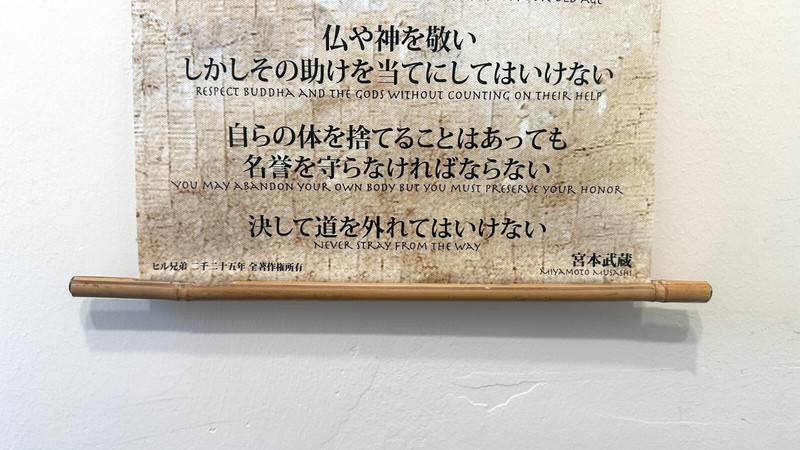 OLD AGE
仏や神を敬い
しかしその助けを当てにしてはいけない
RESPECT BUDDHA AND THE GODS WITHOUT COUNTING ON THEIR HELP
自らの体を捨てることはあっても
名誉を守らなければならない
YOU MAY ABANDON YOUR OWN BODY BUT YOU MUST PRESERVE YOUR HONOR
決して道を外れてはいけない
NEVER STRAY FROM THE WAY
ヒル兄弟 二千二十五年 全著作権所有
宮本武蔵
MIYAMOTO MUSASHI